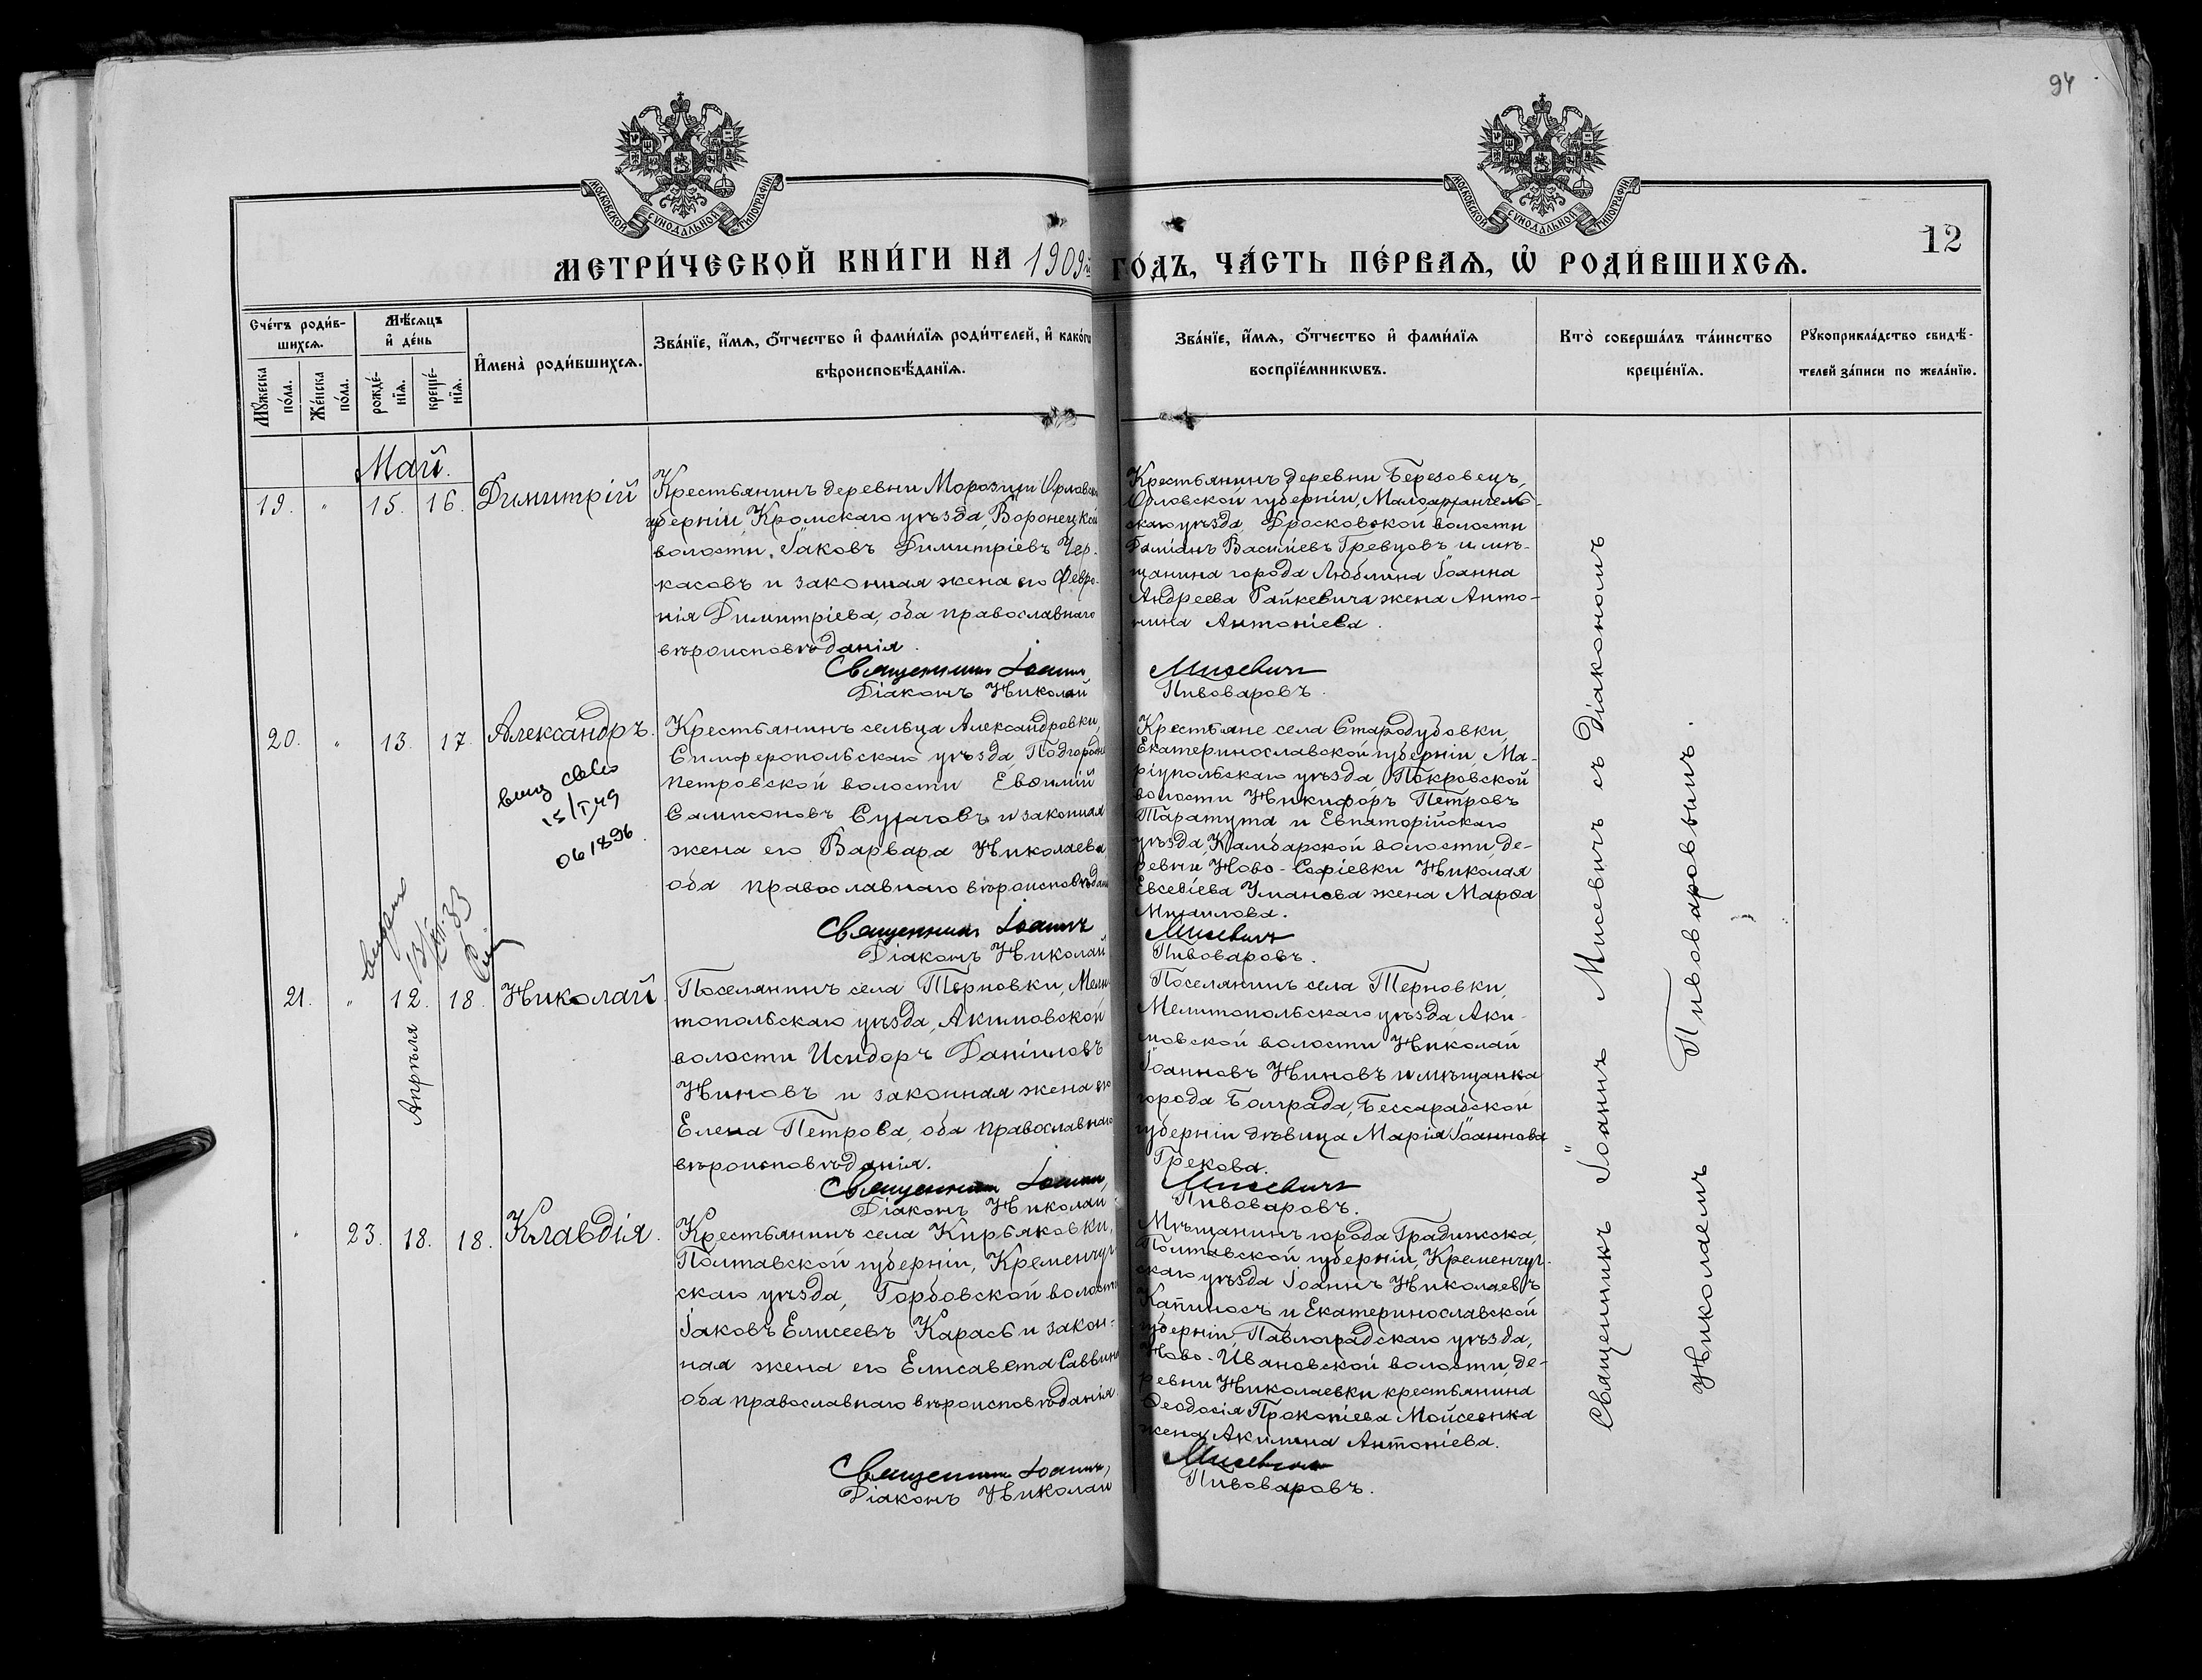 94
МОСКОВСКОЙ СУНОДАЛЬНОЙ ТИПОГРАФІИ
МОСКОВСКОЙ СУНОДАЛЬНОЙ ТИПОГРАФІИ
12
МЕТРИ́ЧЕСКОЙ КНИ́ГИ НА 1909й ГО́ДЪ, ЧА́СТЬ ПЕ́РВАѦ, Ѡ҆ РОДИ́ВШИХСѦ.
Сче́тъ роди́в-
шихсѧ.
Мꙋ́жеска
по́ла.
Же́нска
по́ла.
Мѣ́сѧцъ
и҆ де́нь
рожде́-
нїѧ.
креще́-
нїѧ.
И҆мена̀ роди́вшихсѧ.
Зва́нїе, и҆́мѧ, ѻ҆́тчество и҆ фами́лїѧ роди́телей, и҆ како́гѡ
вѣроисповѣ́данїѧ.
Зва́нїе, и҆́мѧ, ѻ҆́тчество и҆ фами́лїѧ
воспрїе́мникѡвъ.
Кто̀ соверша́лъ та́инство
креще́нїѧ.
Рꙋкоприкла́дство свидѣ́-
телей за́писи по жела́нїю.
Май.
19. " 15. 16. Димитрій
Крестьянинъ деревни Морозихи Орловской
губерніи, Кромскаго уѣзда, Воронецкой
волости, Іаковъ Димитріевъ Чер-
касовъ и законная жена его Февро-
нія Димитріева, оба православнаго
вѣроисповѣданія.
Священникъ Іоаннъ
Діаконъ Николай
Крестьянинъ деревни Березовецъ,
Орловской губерніи, Малоархангель-
скаго уѣзда, Дросковской волости
Даміанъ Василіевъ Гревцовъ и мѣ-
щанина города Люблина Іоанна
Андреева Райкевича жена Анто-
нина Антоніева.
Мисевичъ
Пивоваровъ.
20. " 13. 17. Александръ.
выд св-во
15/I 49
061896
Крестьянинъ сельца Александровки,
Симферопольскаго уѣзда, Подгородне-
петровской волости Евѳимій
Сампсоновъ Сугаговъ и законная
жена его Варвара Николаева,
оба православнаго вѣроисповѣданія
Священникъ Іоаннъ
Діаконъ Николай
Крестьяне села Стародубовки,
Екатеринославской губерніи, Ма-
ріупольскаго уѣзда, Покровской
волости Никифоръ Петровъ
Таратута и Евпаторійскаго
уѣзда, Камбарской волости, де-
ревни Ново-Софіевки Николая
Евсевіева Уманова жена Марѳа
Михаилова.
Мисевичъ
Пивоваровъ.
21. " 12. 18. Николай.
Апрѣля
Поселянинъ села Терновки, Мели-
топольскаго уѣзда, Акимовской
волости Исидоръ Даніиловъ
Ниновъ и законная жена его
Елена Петрова, оба православнаго
вѣроисповѣданія.
Священникъ Іоаннъ
Діаконъ Николай
Поселянинъ села Терновки,
Мелитопольскаго уѣзда, Аки-
мовской волости Николай
Іоанновъ Ниновъ и мѣщанка
города Болграда, Бессарабской
губерніи дѣвица Марія Іоаннова
Грекова.
Мисевичъ
Пивоваровъ.
" 23. 18. 18. Клавдія.
Крестьянинъ села Кирьяковки,
Полтавской губерніи, Кременчуг-
скаго уѣзда, Горбовской волости
Іаковъ Елисеевъ Карась и закон-
ная жена его Елисавета Саввина
оба православнаго вѣроисповѣданія.
Священникъ Іоаннъ
Діаконъ Николай
Мѣщанинъ города Градижска,
Полтавской губерніи, Кременчуг-
скаго уѣзда Іоаннъ Николаевъ
Капиносъ и Екатеринославской
губерніи, Павлоградскаго уѣзда,
Ново-Ивановской волости, де-
ревни Николаевки крестьянина
Ѳеодосія Прокопіева Мойсеенка
жена Акилина Антоніева.
Мисевичъ
Пивоваровъ.
Священникъ Іоаннъ Мисевичъ съ Діакономъ
Николаемъ Пивоваровымъ.